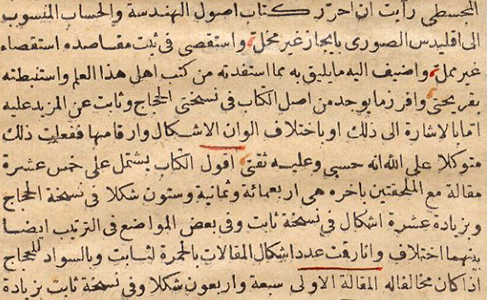 المجسطى رأيت ان احرّر كتاب اصول الهندسة والحساب المنسوب
الى اقليدس الصورى بايجاز غير مخلّ واستقصى فى ثبت مقاصده استقصاء
غير مملّ واضيف اليه ما يليق به مما استفدته من كتب اهل هذا العلم واستنبطته
بقريحتى وافرز ما يوجد من اصل الكتاب فى نسختى الحجاج وثابت عن المزيد عليه
اما بالاشارة الى ذلك او باختلاف الوان الاشكال وارقامها ففعلت ذلك
متوكلا على الله انه حسبى وعليه ثقتى اقول الكتاب يشتمل على خمس عشرة
مقالة مع الملحقتين باخره هى اربعمائة وثمانية وستون شكلا فى نسخة الحجاج
وبزيادة عشرة اشكال فى نسخة ثابت وفى بعض المواضع فى الترتيب ايضا
بينهما اختلاف وانا رقمت عدد اشكال المقالات بالحمرة لثابت وبالسواد للحجاج
اذا كان مخالفا له المقالة الاولى سبعة واربعون شكلا وفى نسخة ثابت بزيادة